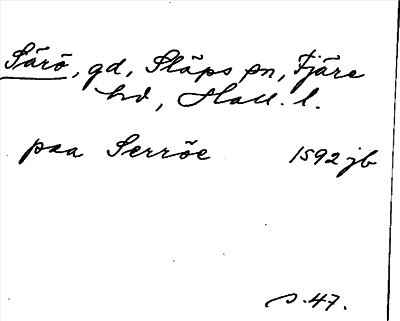 Särö, gd, Släps sn, Fjäre
hd, Hall. l.
paa Serröe 1592 jb
s. 47.